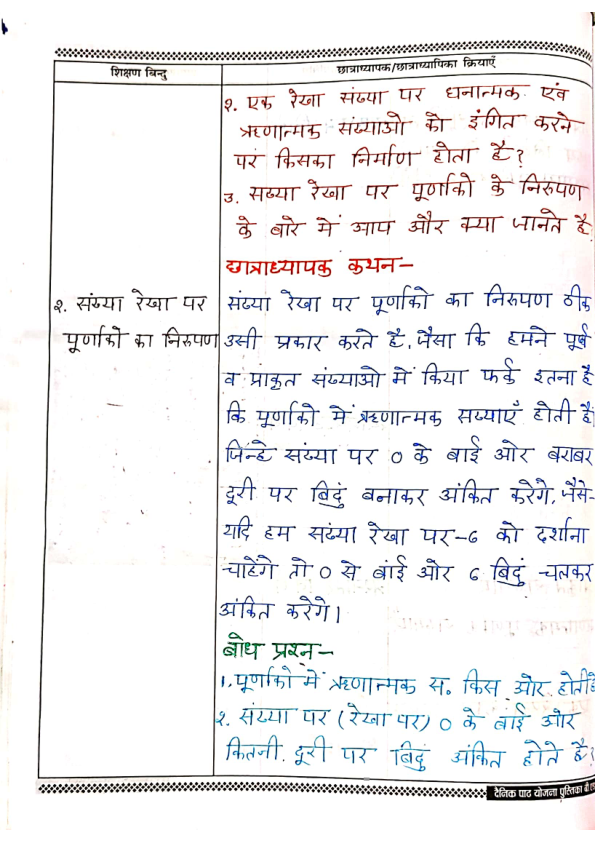 शिक्षण बिन्दु
छात्राध्यापक/छात्राध्यापिका क्रियाएँ
२. एक रेखा संख्या पर धनात्मक एंव
ऋणात्मक संख्याओ को इंगित करने
पर किसका निर्माण होता है?
३. सख्या रेखा पर पूर्णाकों के निरुपण
के बारे में आप और क्या जानते है
छात्राध्यापक कथन-
२. संख्या रेखा पर
पूर्णाकों का निरुपण
संख्या रेखा पर पूर्णाकों का निरुपण ठीक
उसी प्रकार करते है, जैसा कि हमने पूर्ण
व प्राकृत संख्याओ में किया फर्क इतना है
कि पूर्णाकों में ऋणात्मक सख्याएँ होती है।
जिन्हे संख्या पर 0 के बाई ओर बराबर
दूरी पर बिदुं बनाकर अंकित करेंगे, जैसे-
यदि हम संख्या रेखा पर -6 को दर्शाना
चाहेंगे तो 0 से बांई ओर 6 बिदुं चलकर
अंकित करेंगे।
बोध प्रश्न-
1. पूर्णाकों में ऋणात्मक स. किस ओर होती है
२. संख्या पर (रेखा पर) 0 के बाई ओर
कितनी दूरी पर बिदुं अंकित होते है?
दैनिक पाठ योजना पुस्तिका